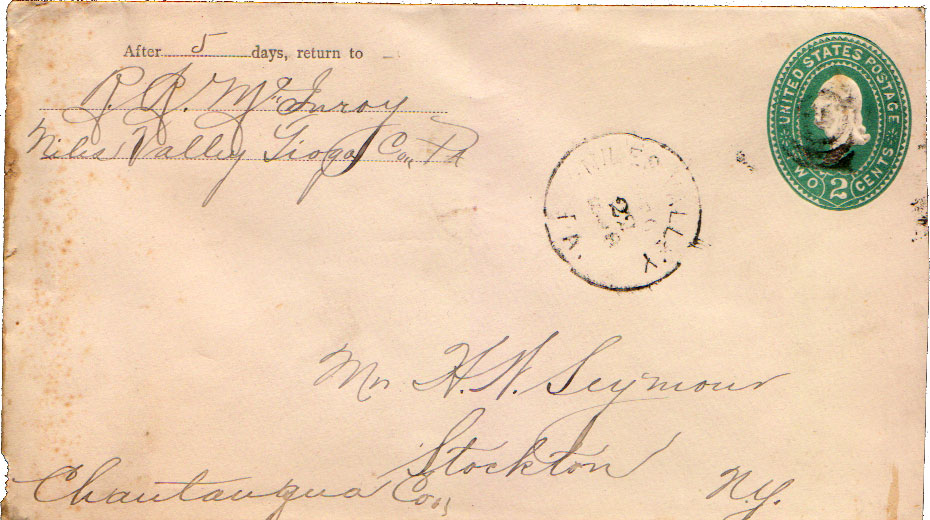 After 5 days, return to
R. R. McInroy
Niles Valley Tioga Co., Pa
UNITED STATES POSTAGE
TWO 2 CENTS
NILES VALLEY
PA
23
Mr H. N. Seymour
Stockton
Chautauqua Co., N.Y.